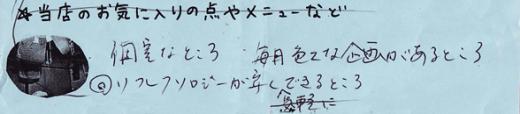 ☆当店のお気に入りの点やメニューなど
個室なところ ・毎月色々な企画があるところ
◎リフレクソロジーが安くできるところ
気軽に